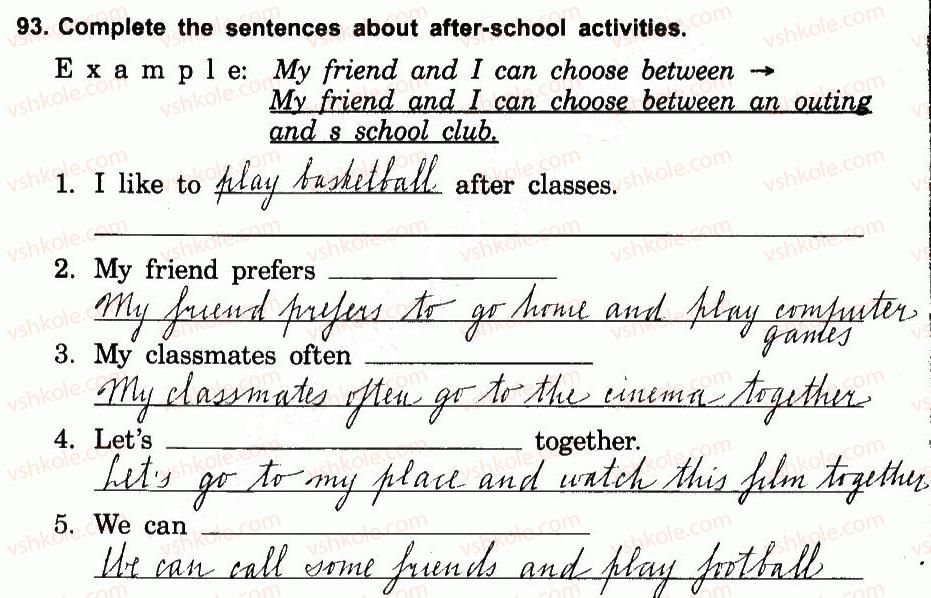 93. Complete the sentences about after-school activities.
E x a m p l e: My friend and I can choose between →
My friend and I can choose between an outing
and s school club.
1. I like to play basketball after classes.
2. My friend prefers
My friend prefers to go home and play computer
games
3. My classmates often
My classmates often go to the cinema together
4. Let's together.
Let's go to my place and watch this film together
5. We can
We can call some friends and play football